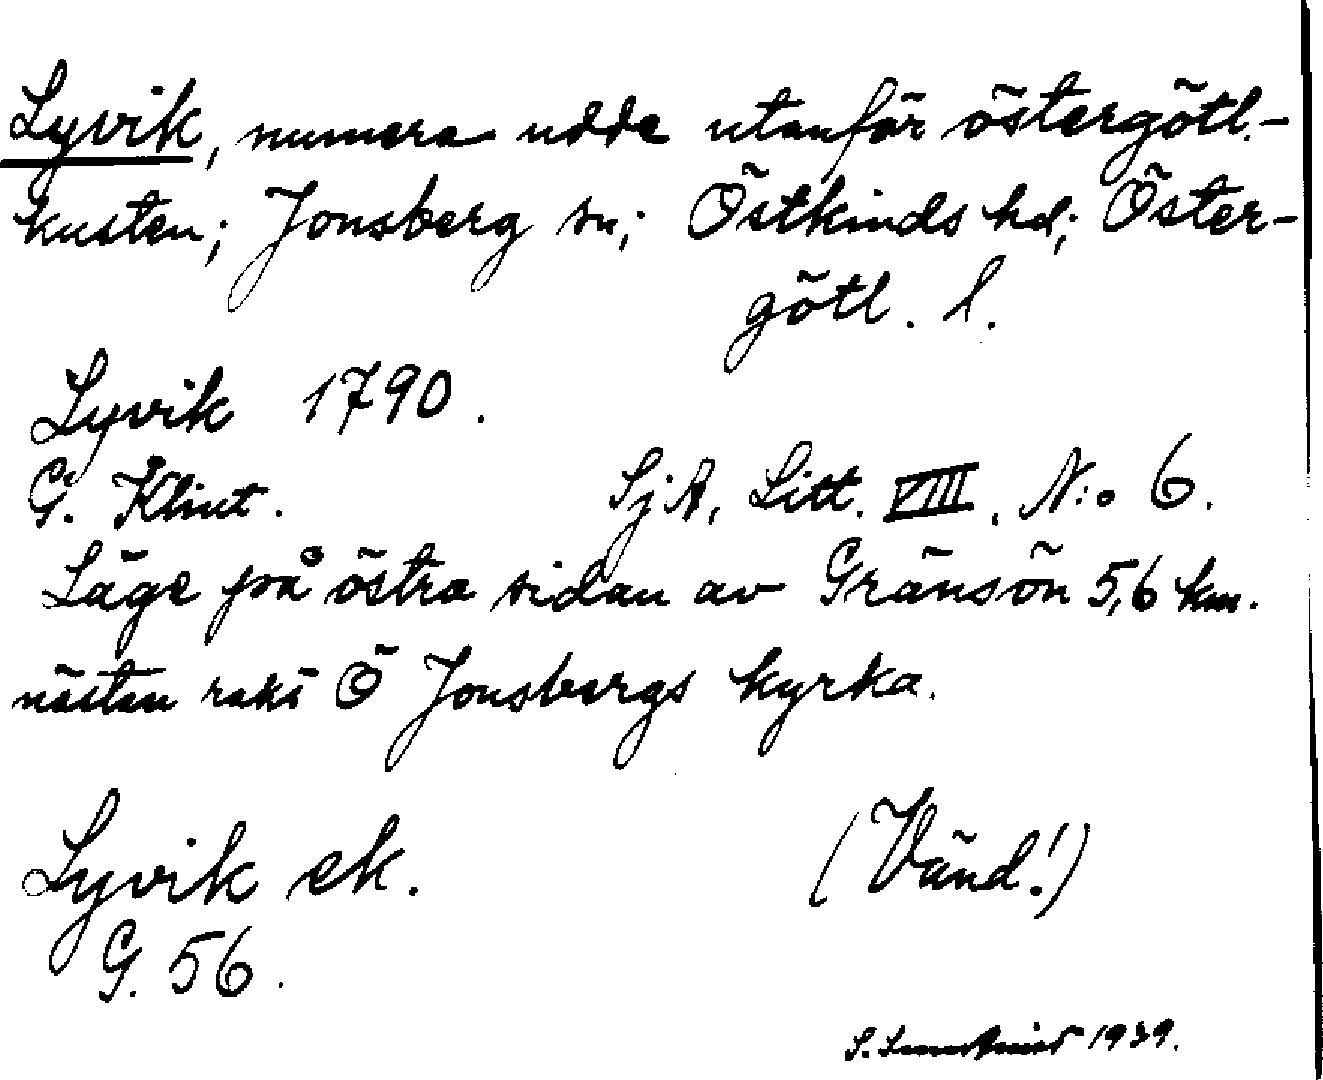 Lyvik, numera udde utanför östergötl.-
kusten; Jonsberg sn; Östkinds hd; Öster-
götl. l.
Lyvik 1790.
G. Klint. SjA, Litt. VIII. N:o 6.
Läge på östra sidan av Gränsön 5,6 km.
nästan rakt Ö Jonsbergs kyrka.
Lyvik ek. (Vänd!)
G. 56.
S. 1939.